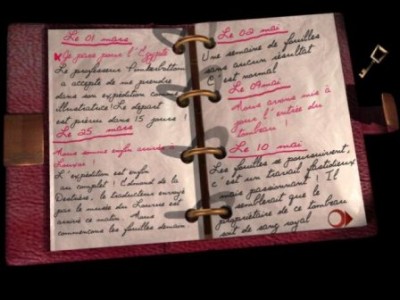 Le 01 mars
Je pars pour l'Egypte
Le professeur Punkerbutton
a accepté de me prendre
dans son expédition comme
illustratrice! Le départ
est prévu dans 15 jours !
Le 25 mars
Nous sommes enfin arrivés à
Louxor !
L'expédition est enfin
au complet ! Edmond de la
Dentière, le traducteur envoyé
par le musée du Louvre est
arrivé ce matin. Nous
commençons les fouilles demain
Le 02 mai
Une semaine de fouilles
sans aucun résultat
C'est normal
Le 9 mai
Nous avons mis à
jour l'entrée du
tombeau !
Le 10 mai
Les fouilles se poursuivent,
c'est un travail fastidieux
mais passionnant ! Il
semblerait que le
propriétaire de ce tombeau
soit de sang royal